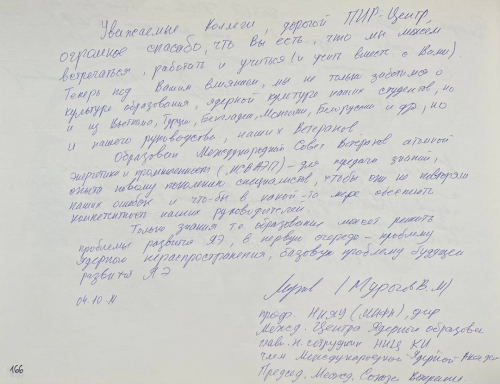 Уважаемые Коллеги, дорогой ПИР-Центр,
огромное спасибо, что Вы есть, что мы можем
встречаться, работать и учиться (и учить вместе с Вами)
Теперь под Вашим влиянием, мы не только заботимся о
культуре образования, ядерной культуре наших студентов, но
и из Вьетнама, Турции, Бангладеш, Монголии, Белоруссии и др, но
и нашего руководства, наших Ветеранов.
Образован Международный Совет Ветеранов атомной
энергетики и промышленности (МСВАЭП) - для передачи знаний,
опыта новому поколению специалистов, чтобы они не повторяли
наших ошибок и что-бы в какой-то мере обеспечить
компетентность наших руководителей.
Только знания и образование может решить
проблемы развития ЯЭ, в первую очередь - проблему
Ядерного нераспространения, базовую проблему будущего
развития ЯЭ
04.10
/Мурогов В.М/
проф. НИЯУ (МИФИ), дир
Межд. Центра Ядерного образован
главн. н. сотрудник НИЦ КИ
член Международной Ядерной Академ
Председ. Межд. Союза Ветеранов
166